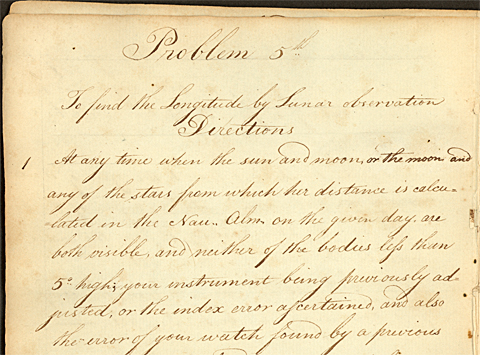 Problem 5th
To find the Longitude by Lunar observation
Directions
1 At any time when the sun and moon, or the moon and
any of the stars from which her distance is calcu-
lated in the Nau. Alm. on the given day, are
both visible, and neither of the bodies less than
5° high; your instrument being previously ad-
justed, or the index error ascertained, and also
the error of your watch found by a previous